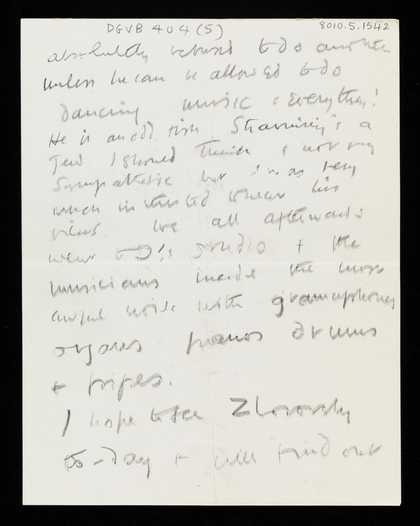 DGVB 404 (5)
8010.5.1542
absolutely refused to do another
unless he can be allowed to do
dancing music & everything!
He is an odd fish Stravinsky's a
Jew I should think & not very
Sympathetic but I was very
much interested to hear his
views. We all afterwards
went to studio & the
musicians made the most
awful noise with gramophones
organs pianos drums
& pipes.
I hope to see
to-day & will find out